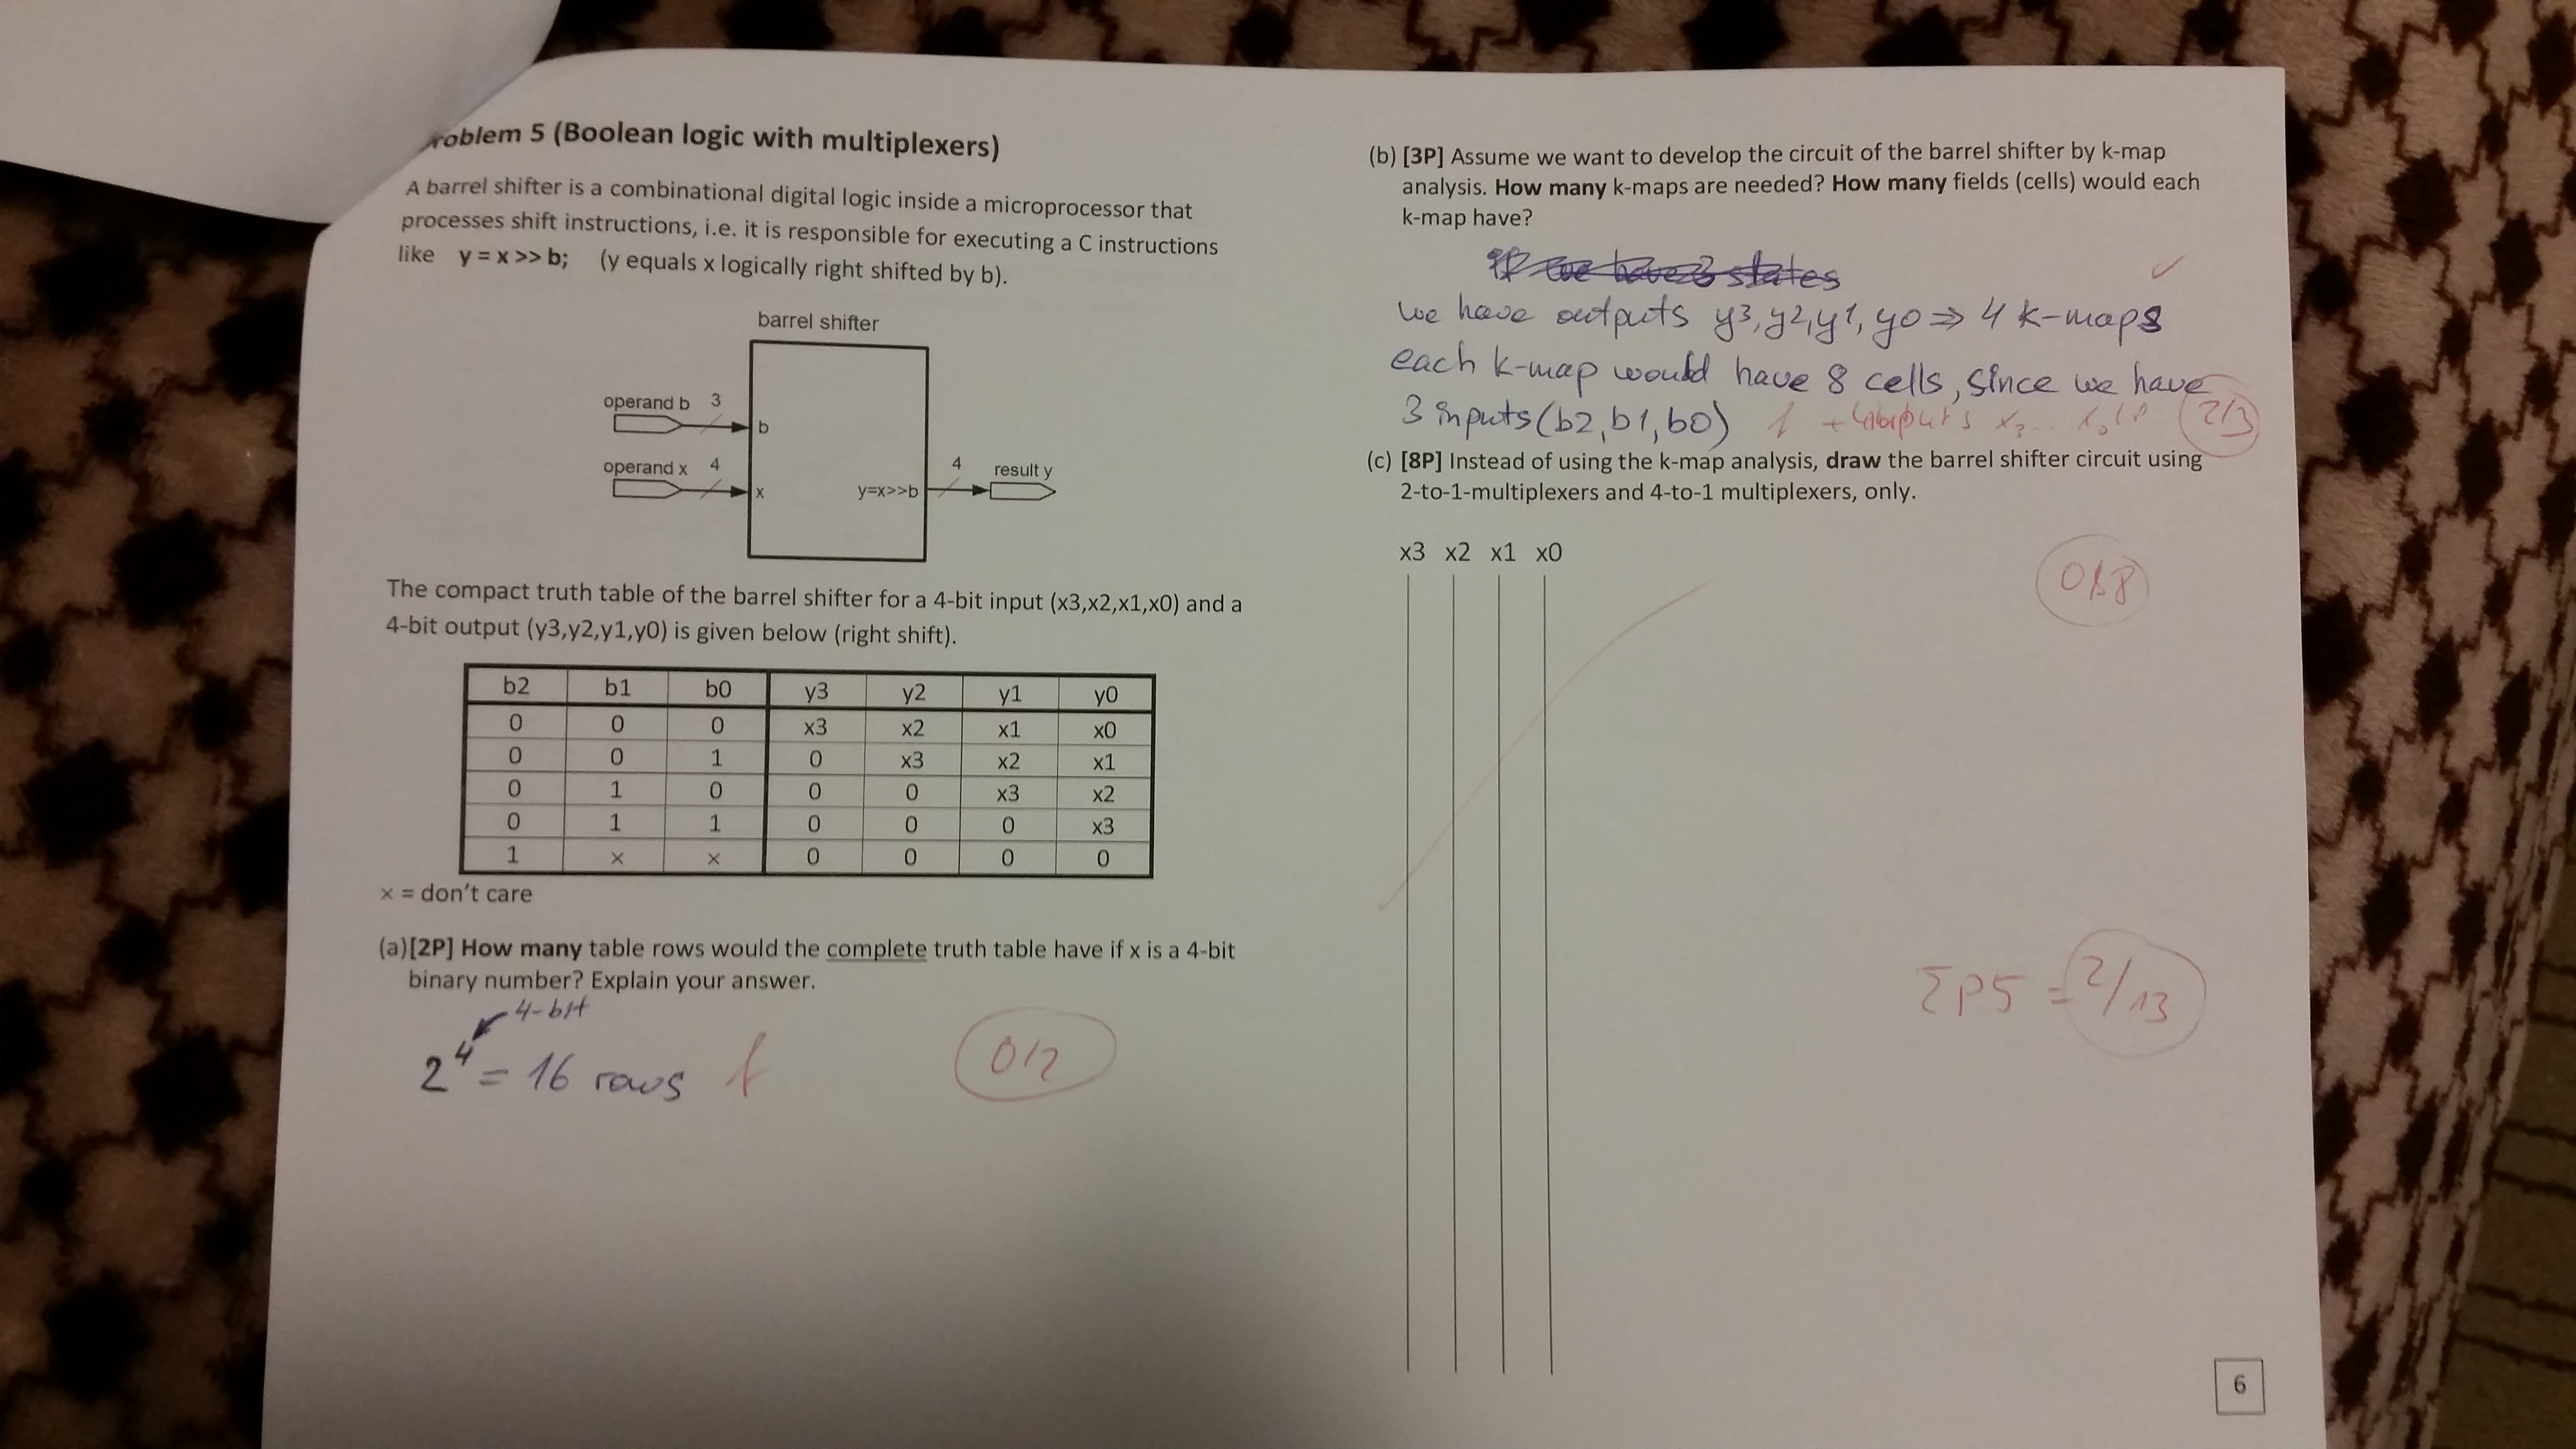 roblem 5 (Boolean logic with multiplexers)
A barrel shifter is a combinational digital logic inside a microprocessor that
processes shift instructions, i.e. it is responsible for executing a C instructions
like y = x >> b; (y equals x logically right shifted by b).
barrel shifter
operand b 3
b
operand x 4
x
y=x>>b
4
result y
The compact truth table of the barrel shifter for a 4-bit input (x3,x2,x1,x0) and a
4-bit output (y3,y2,y1,y0) is given below (right shift).
b2 b1 b0 y3 y2 y1 y0
0 0 0 x3 x2 x1 x0
0 0 1 0 x3 x2 x1
0 1 0 0 0 x3 x2
0 1 1 0 0 0 x3
1 × × 0 0 0 0
× = don't care
(a)[2P] How many table rows would the complete truth table have if x is a 4-bit
binary number? Explain your answer.
4-bit
2⁴ = 16 rows f
0/2
(b) [3P] Assume we want to develop the circuit of the barrel shifter by k-map
analysis. How many k-maps are needed? How many fields (cells) would each
k-map have?
we have 3 states
✓
we have outputs y3,y2,y1,y0 ⇒ 4 k-maps
each k-map would have 8 cells, since we have
3 inputs(b2,b1,b0) f + 4 inputs x3...
2/3
(c) [8P] Instead of using the k-map analysis, draw the barrel shifter circuit using
2-to-1-multiplexers and 4-to-1 multiplexers, only.
x3 x2 x1 x0
ΣP5 = 2/13
6